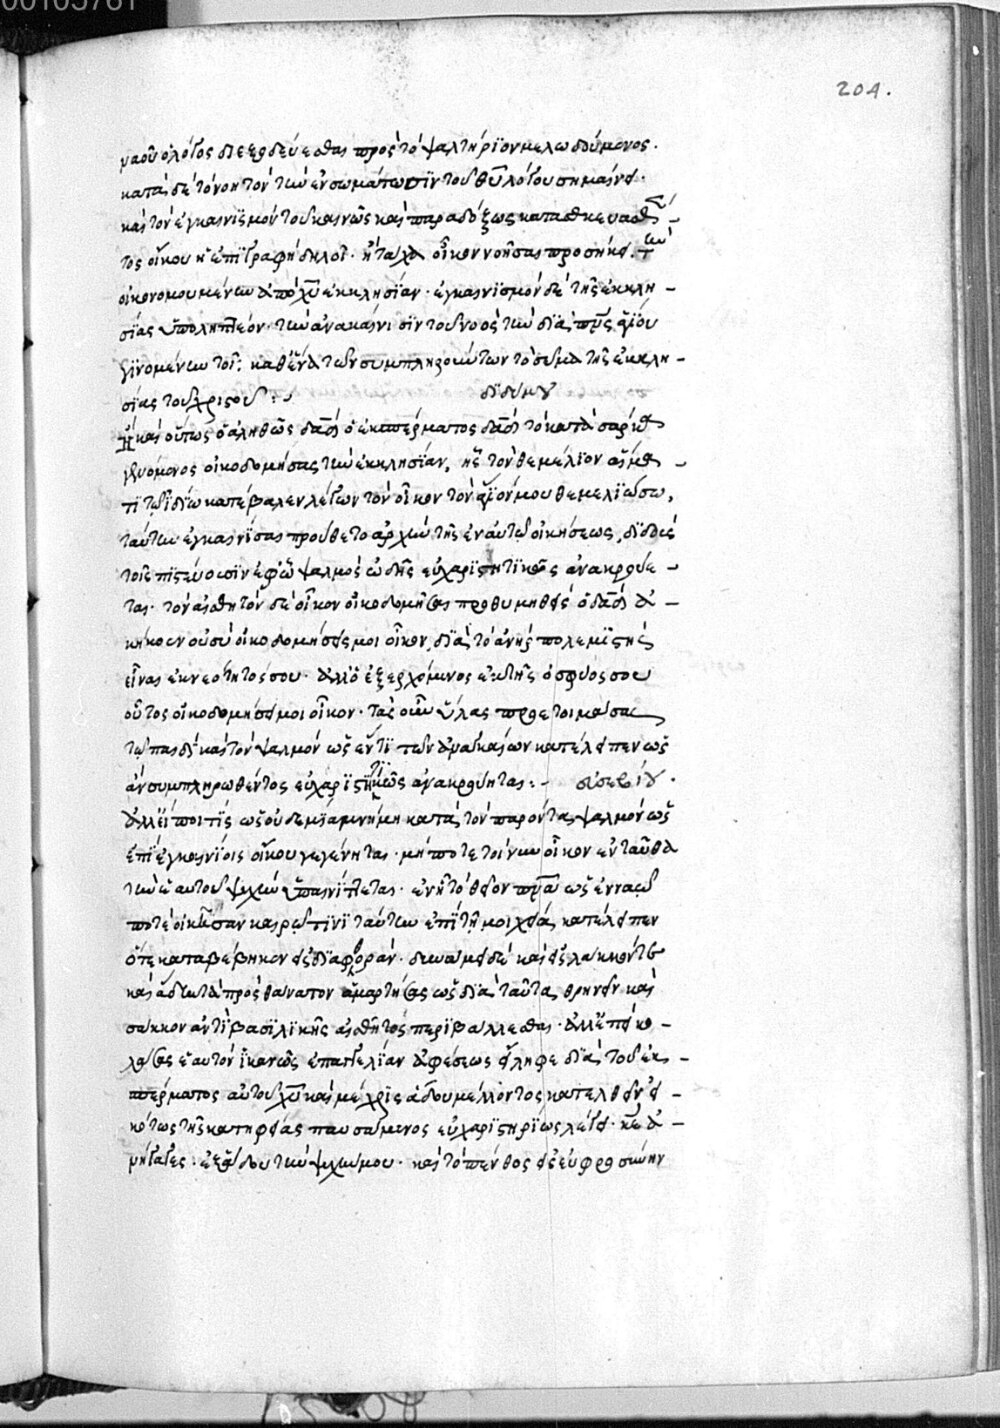 00105761
204.
ναοῦ ὁ λόγος διεξοδεύεσθαι πρὸς τὸ ψαλτήριον μελωδούμενος.
κατὰ δὲ τὸ νοητὸν τὴν ἐνσωμάτωσϊν τοῦ θυ λόγου σημαίνει.
καὶ τὸν ἐγκαινϊσμὸν τοῦ καινῶς καὶ παραδόξως κατασκευασθέν-
τος οἴκου ἡ ἐπϊγραφὴ δηλοῖ. ἢ τάχα οἶκον νοῆσαι προσήκει. τὴν
οἰκονομουμένην ἀπὸ χυ ἐκκλησίαν. ἐγκαινϊσμὸν δὲ τῆς ἐκκλη-
σίας ὑποληπτέον. τὴν ἀνακαίνισϊν τοῦ νοὸς τὴν δϊὰ πνς ἁγίου
γϊνομένην τοῖς καθένα τῶν συμπληρούντων τὸ σῶμα τῆς ἐκκλη-
σίας τοῦ χριστοῦ:, διδύμου
ἢ καὶ οὕτως ὁ ἀληθῶς δαδ ὁ ἐκ σπέρματος δαδ τὸ κατὰ σάρκα
γενόμενος οἰκοδομήσας τὴν ἐκκλησίαν, ἧς τὸν θεμέλϊον αἵμα-
τϊ τῷ ἰδίω κατέβαλεν λέγων τὸν οἶκον τὸν ἅγϊόν μου θεμελϊώσω,
ταύτην ἐγκαινίσας προύθετο ἀρχὴν τῆς ἐν αὐτῷ οἰκήσεως, δϊδοὺς
τοῖς πϊστεύουσϊν ἐφ' ᾧ ψαλμὸς ὠδῆς εὐχαρϊστητϊκῶς ἀνακρούε-
ται. τὸν αἰσθητὸν δὲ οἶκον οἰκοδομῆσαι προθυμηθεὶς ὁ δαδ ἀ-
κήκοεν οὐ σὺ οἰκοδομήσεις μοι οἶκον, δϊὰ τὸ ἀνὴρ πολεμϊστὴς
εἶναι ἐκ νεότητός σου. ἀλλ' ὁ ἐξερχόμενος ἐκ τῆς ὀσφύος σου
οὗτος οἰκοδομήσει μοι οἶκον. τὰς οὖν ὕλας προετοιμάσας
τῷ παιδὶ καὶ τὸν ψαλμὸν ὡς ἕν τϊ τῶν ἀναγκαίων κατέλειπεν ὡς
ἂν συμπληρωθέντος εὐχαρϊστητικῶς ἀνακρούηται:- εὐσεβίου.
ἀλλ' εἴποι τϊς ὡς οὐδεμϊὰ μνήμη κατὰ τὸν παρόντα ψαλμὸν ὡς
ἐπὶ ἐγκαινίοις οἴκου γεγένηται. μήποτε τοίνυν οἶκον ἐνταῦθα
τὴν ἑαυτοῦ ψυχὴν ὑπαινίττεται. ἐν ᾗ τὸ θεῖον πνα ὡς ἐν ναῷ
ποτὲ οἰκῆσαν καιρῷ τϊνϊ ταύτην ἐπϊ τῇ μοιχείᾳ κατέλειπεν
ὅτε καταβέβηκεν εἰς δϊαφθοράν. δυνάμει δὲ καὶ εἰς λάκκον τε
καὶ ᾅδην τὰ πρὸς θάνατον ἁμαρτήσας ὡς δϊὰ ταῦτα θρηνεῖν καὶ
σάκκον ἀντὶ βασϊλϊκῆς αἰσθῆτος περϊβάλλεσθαι. ἀλλ' ἐπεὶ κο-
λάσας ἑαυτὸν ἱκανῶς ἐπαγγελίαν ἀφέσεως εἴληφε δϊὰ τοῦ ἐκ
σπέρματος αὐτοῦ χυ καὶ μέχρϊς ᾅδου μέλλοντος κατελθεῖν εἰ-
κότως τῆς κατηφείας παυσάμενος εὐχαρϊστηρϊως λέγει. κε ἀ-
νήγαγες ἐξ ᾅδου τὴν ψυχήν μου. καὶ τὸ πένθος εἰς εὐφροσύνην